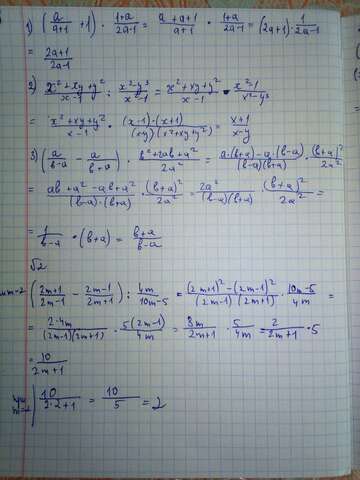 1) (a/(a+1) + 1) · (1+a)/(2a-1) = (a+a+1)/(a+1) · (1+a)/(2a-1) = (2a+1) · 1/(2a-1)
= (2a+1)/(2a-1)
2) (x²+xy+y²)/(x-1) : (x³-y³)/(x²-1) = (x²+xy+y²)/(x-1) · (x²-1)/(x³-y³)
= (x²+xy+y²)/(x-1) · ((x-1)·(x+1))/((x-y)(x²+xy+y²)) = (x+1)/(x-y)
3) (a/(b-a) - a/(b+a)) · (b²+2ab+a²)/(2a²) = (a·(b+a)-a·(b-a))/((b-a)(b+a)) · (b+a)²/(2a²)
= (ab+a²-ab+a²)/((b-a)·(b+a)) · (b+a)²/(2a²) = 2a²/((b-a)(b+a)) · (b+a)²/(2a²) =
= 1/(b-a) · (b+a) = (b+a)/(b-a)
√2
m-2 ((2m+1)/(2m-1) - (2m-1)/(2m+1)) : 4m/(10m-5) = ((2m+1)²-(2m-1)²)/((2m-1)(2m+1)) · (10m-5)/(4m) =
= (2·4m)/((2m-1)(2m+1)) · 5(2m-1)/(4m) = 8m/(2m+1) · 5/(4m) = 2/(2m+1) · 5
= 10/(2m+1)
10/(2·2+1) = 10/5 = 2